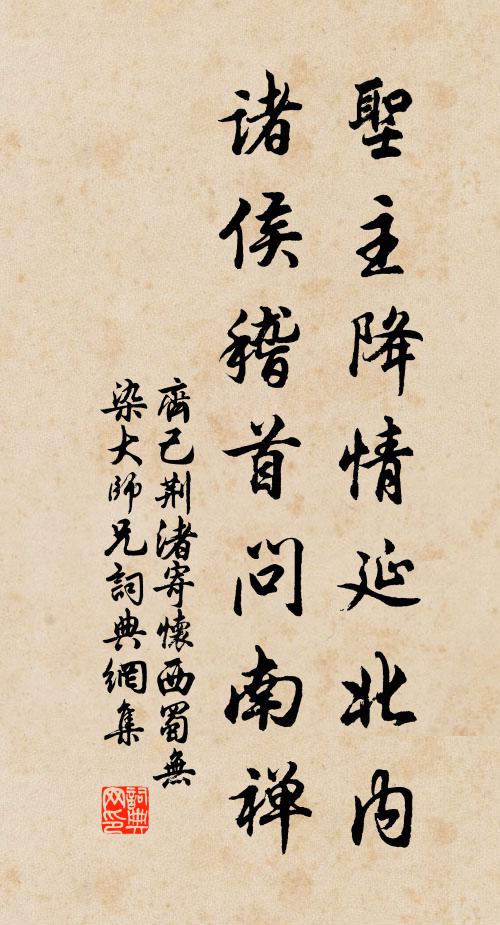 聖主降情延北内
诸侯稽首問南禅
齊己荆渚寄懷西蜀無
染大師兄詞典網集
詞典
网印